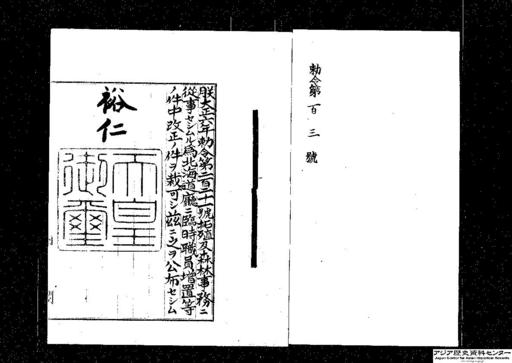 勅令第百三號
朕大正六年勅令第二百二十一號拓殖及森林事務ニ
從事セシムル爲北海道廳ニ臨時職員増置等
ノ件中改正ノ件ヲ裁可シ茲ニ之ヲ公布セシム
裕仁
天皇御璽
アジア歴史資料センター
Japan Center for Asian Historical Records